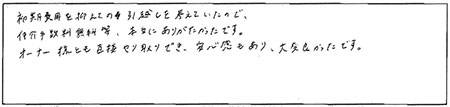 初期費用を抑えての引越しを考えていたので、
仲介手数料無料等、本当にありがたかったです。
オーナー様とも直接やり取りでき、安心感もあり、大変良かったです。